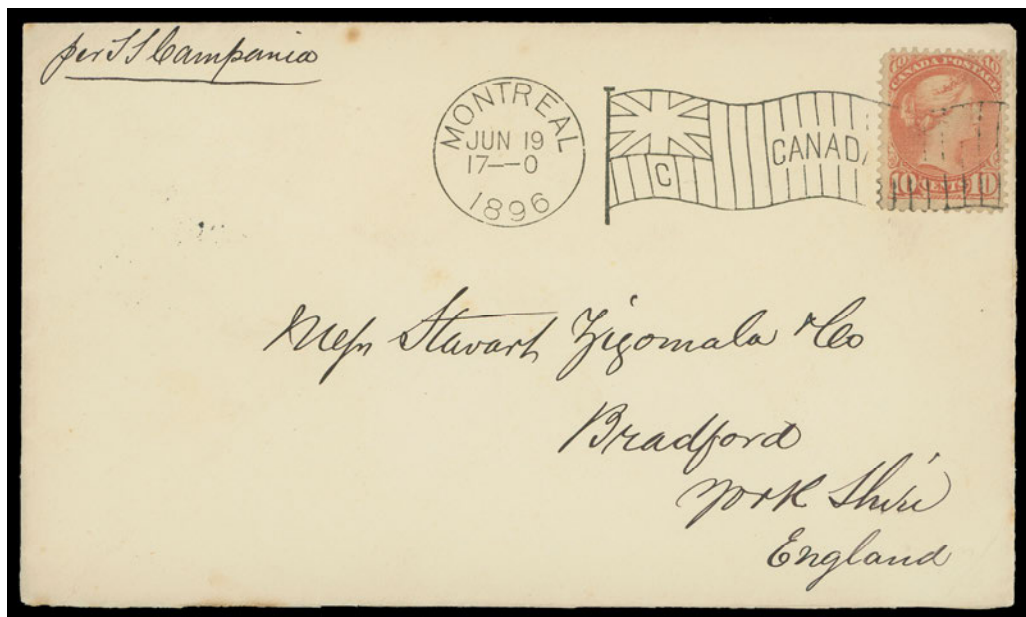 per SS Campania
MONTREAL
JUN 19
17—0
1896
C
CANADA
CANADA POSTAGE
10 10
10 CENTS 10
Messrs Stavart Zigomala & Co
Bradford
York Shire
England